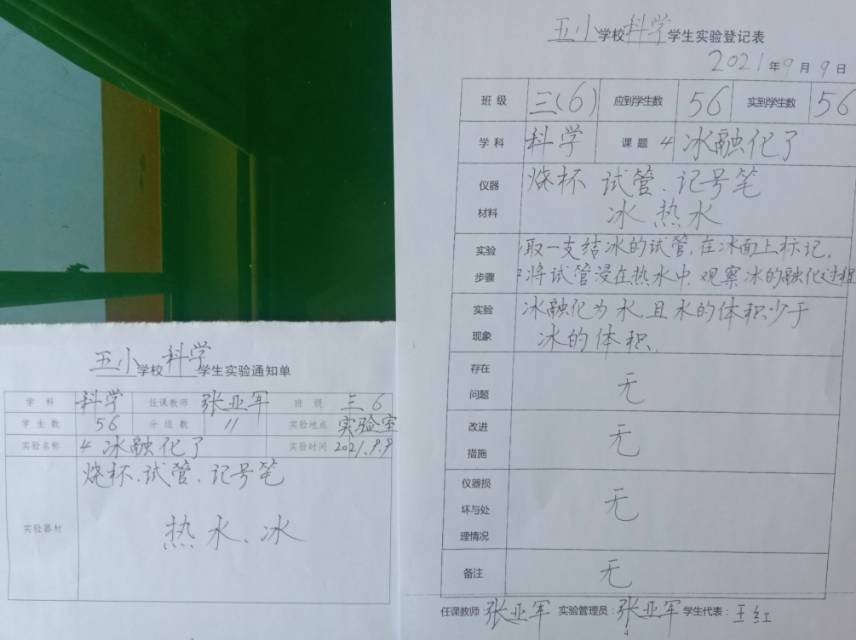 五小学校科学学生实验通知单
学科 科学 任课教师 张亚军 班级 三6
学生数 56 分组数 11 实验地点 实验室
实验名称 4 冰融化了 实验时间 2021.9.9
实验器材 烧杯、试管、记号笔
热水、冰
五小学校科学学生实验登记表
2021年9月9日
班级 三(6) 应到学生数 56 实到学生数 56
学科 科学 课题 4 冰融化了
仪器材料 烧杯 试管、记号笔
冰 热水
实验步骤 取一支结冰的试管,在冰面上标记,
2将试管浸在热水中,观察冰的融化过程
实验现象 冰融化为水,且水的体积少于
冰的体积.
存在问题 无
改进措施 无
仪器损坏与处理情况 无
备注 无
任课教师 张亚军 实验管理员: 张亚军 学生代表: 王红